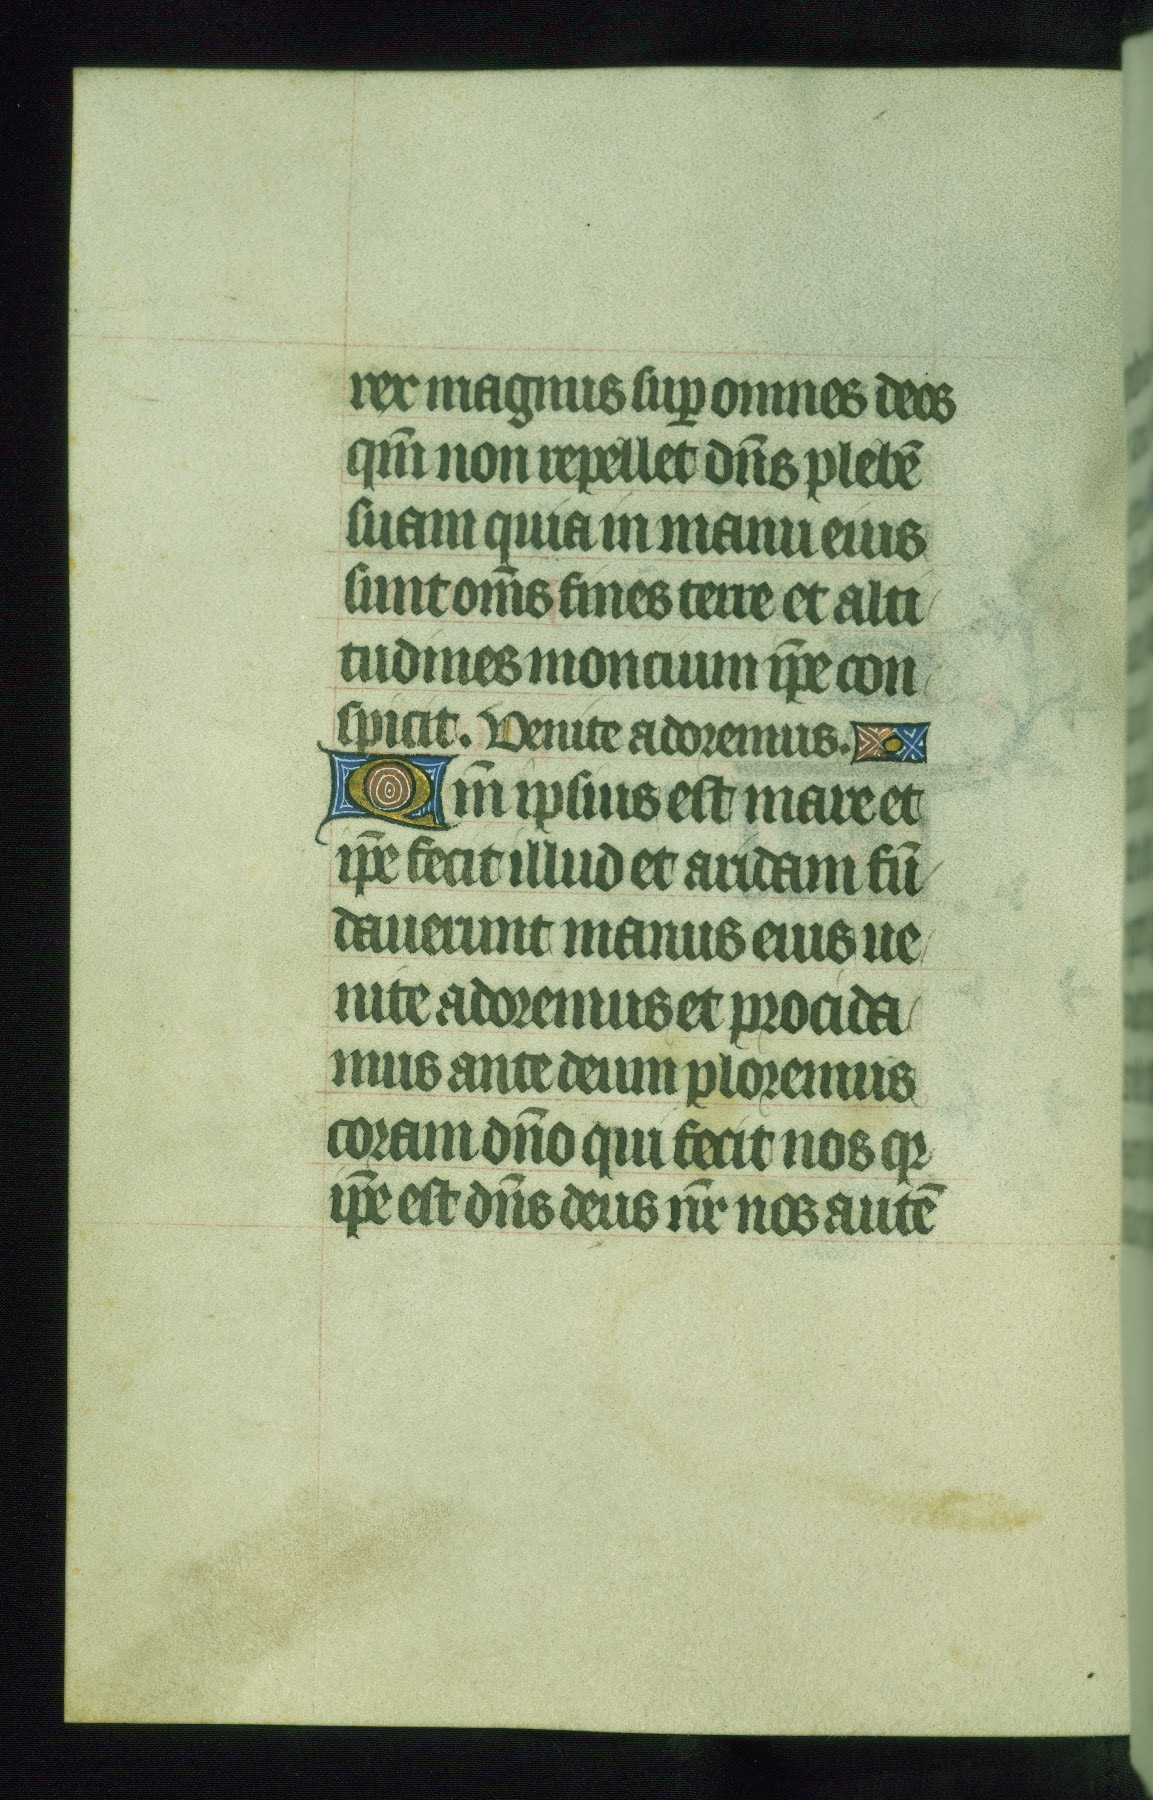 rex magnus suꝑ omnes deos
qm̄ non repellet dn̄s plebē
suam quia in manu eius
sunt om̄s fines terre et alti
tudines moncium ip̄e con
spicit. Venite adoremus.
Qm̄ ipsius est mare et
ip̄e fecit illud et aridam fū
dauerunt manus eius ue
nite adoremus et procida
mus ante deum ploremus
coram dn̄o qui fecit nos qꝛ
ip̄e est dn̄s deus nr̄ nos autē